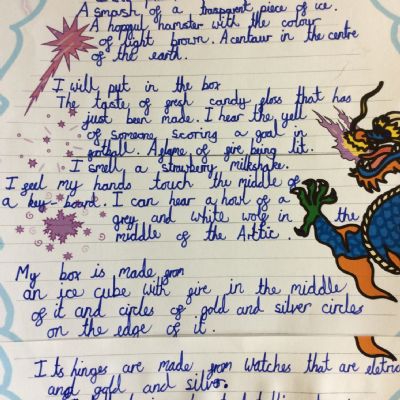 A smash of a transparent piece of ice.
A hoppul hamster with the colour
of light brown. A centaur in the centre
of the earth.
I will put in the box
The taste of fresh candy floss that has
just been made. I hear the yell
of someone scoring a goal in
football. A flame of fire being lit.
I smell a strawberry milkshake.
I feel my hands touch the middle of
a key-board. I can hear a howl of a
grey and white wolf in the
middle of the Arctic.
My box is made from
an ice cube with fire in the middle
of it and circles of gold and silver circles
on the edge of it.
Its hinges are made from watches that are eletric
and gold and silver.